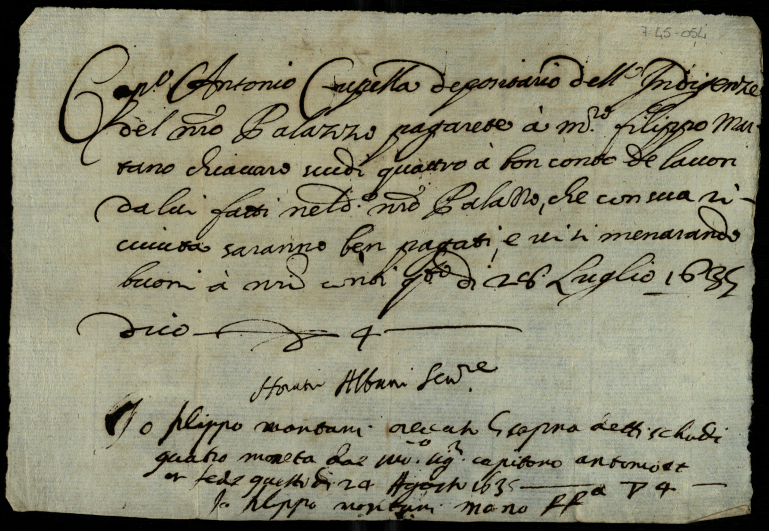 7-45-054
Cap.º Antonio Cupella depositario dell'Indigenze
del nrõ Palazzo pagarete à m.ro filippo Mar-
tano chiavaro scudi quattro à bon conto de lavori
da lui fatti nel d.º nrõ Palazzo, che con sua ri-
cevuta saranno ben pagati, e vi si menarando
buoni à nrĩ conti q.sto dì 28 Luglio 1635
dico 4
Horatio Albani
Io filippo montani o recevuto li sopra detti schudi
quatro moneta dal sig.r capitano antonio et
in fede questo di 24 Agosto 1635 4
Io filippo montani mano